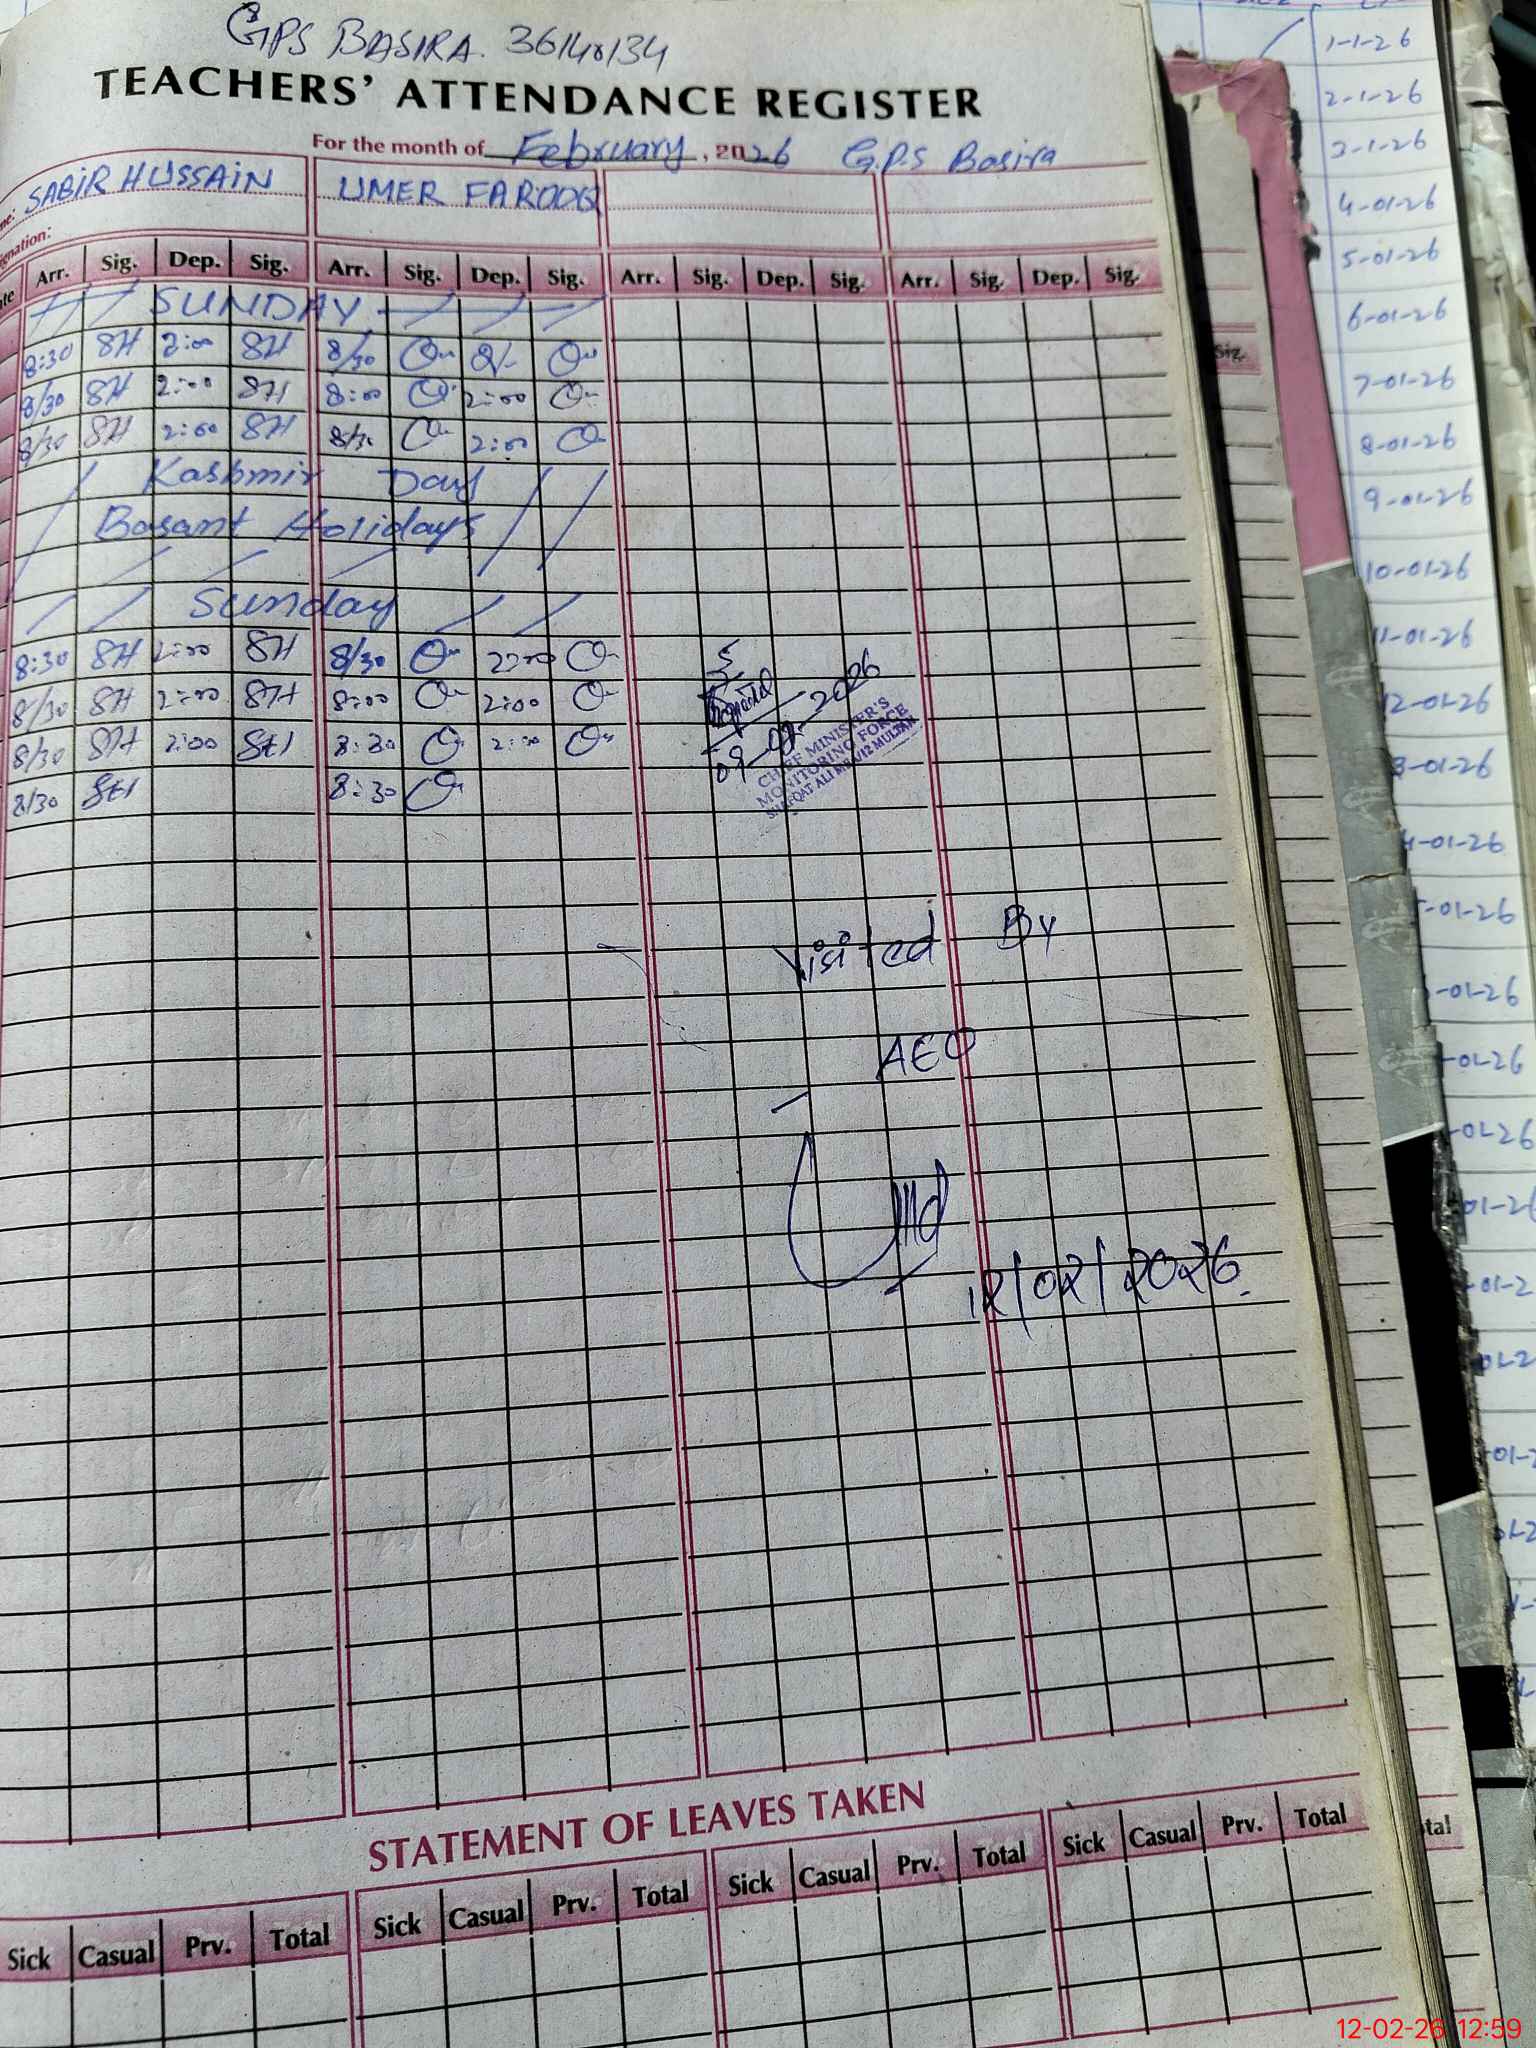 GPS BASIRA. 36140134
TEACHERS' ATTENDANCE REGISTER
For the month of February, 2026 G.P.S Basira
SABIR HUSSAIN UMER FAROOQ
Arr. Sig. Dep. Sig. Arr. Sig. Dep. Sig. Arr. Sig. Dep. Sig. Arr. Sig. Dep. Sig.
SUNDAY
8:30 SH 2:00 SH 8/30 2/-
8/30 SH 2:00 SH 8:00 2:00
8/30 SH 2:00 SH 8/30 2:00
Kashmir Day
Basant Holidays
Sunday
8:30 SH 2:00 SH 8/30 2:00
8/30 SH 2:00 SH 8:00 2:00
8/30 SH 2:00 SH 8:30 2:00
8/30 SH 8:30
09-02-2026
CHIEF MINISTER'S
MONITORING FORCE
Visited By
AEO
12/02/2026.
STATEMENT OF LEAVES TAKEN
Sick Casual Prv. Total Sick Casual Prv. Total Sick Casual Prv. Total Sick Casual Prv. Total
Sig.
tal
1-1-26
2-1-26
3-1-26
4-01-26
5-01-26
6-01-26
7-01-26
8-01-26
9-01-26
10-01-26
11-01-26
12-01-26
3-01-26
4-01-26
-01-26
-01-26
-01-26
-01-26
01-26
-01-2
01-2
12-02-26 12:59